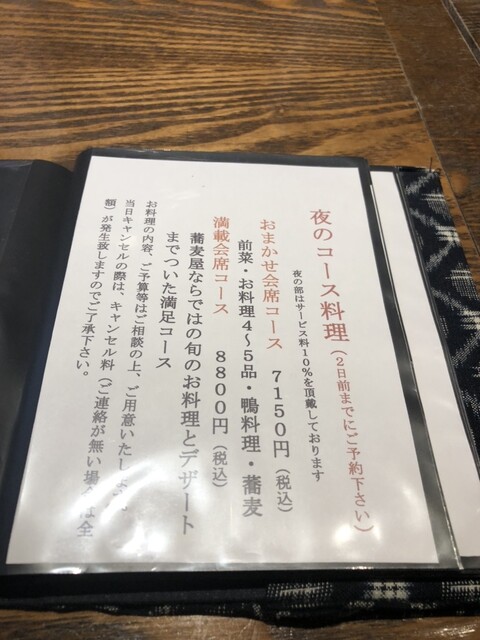 夜のコース料理（２日前までにご予約下さい）
夜の部はサービス料10％を頂戴しております
おまかせ会席コース　７１５０円（税込）
前菜・お料理４～５品・鴨料理・蕎麦
満載会席コース　８８００円（税込）
蕎麦屋ならではの旬のお料理とデザート
までついた満足コース
お料理の内容、ご予算等はご相談の上、ご用意いたします。
当日キャンセルの際は、キャンセル料（ご連絡が無い場合は全
額）が発生致しますのでご了承下さい。